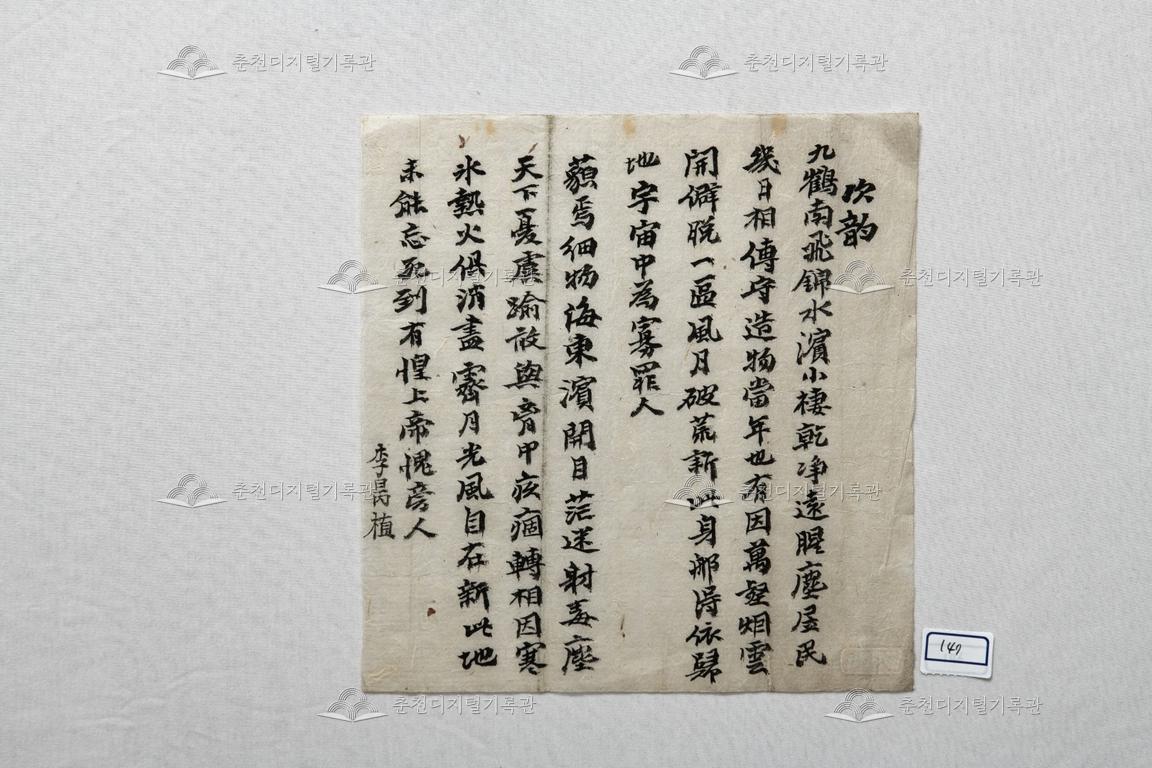 次韵
九鶴南飛錦水濱小棲乾净遠腥塵居民
幾日相傳守造物當年也有因萬壑烟雲
開僻脱一區風月破荒新此身那得依歸
地宇宙中為寡罪人
藐焉細物海東濱開目茫迷射毒塵
天下憂虞踰散與膏甲痎痼轉相因寒
氷熱火俱消盡霽月光風自在新此地
未能忘死到有惶上帝愧旁人
李昺植
147
춘천디지털기록관
춘천디지털기록관
춘천디지털기록관
춘천디지털기록관
춘천디지털기록관
춘천디지털기록관
춘천디지털기록관
춘천디지털기록관